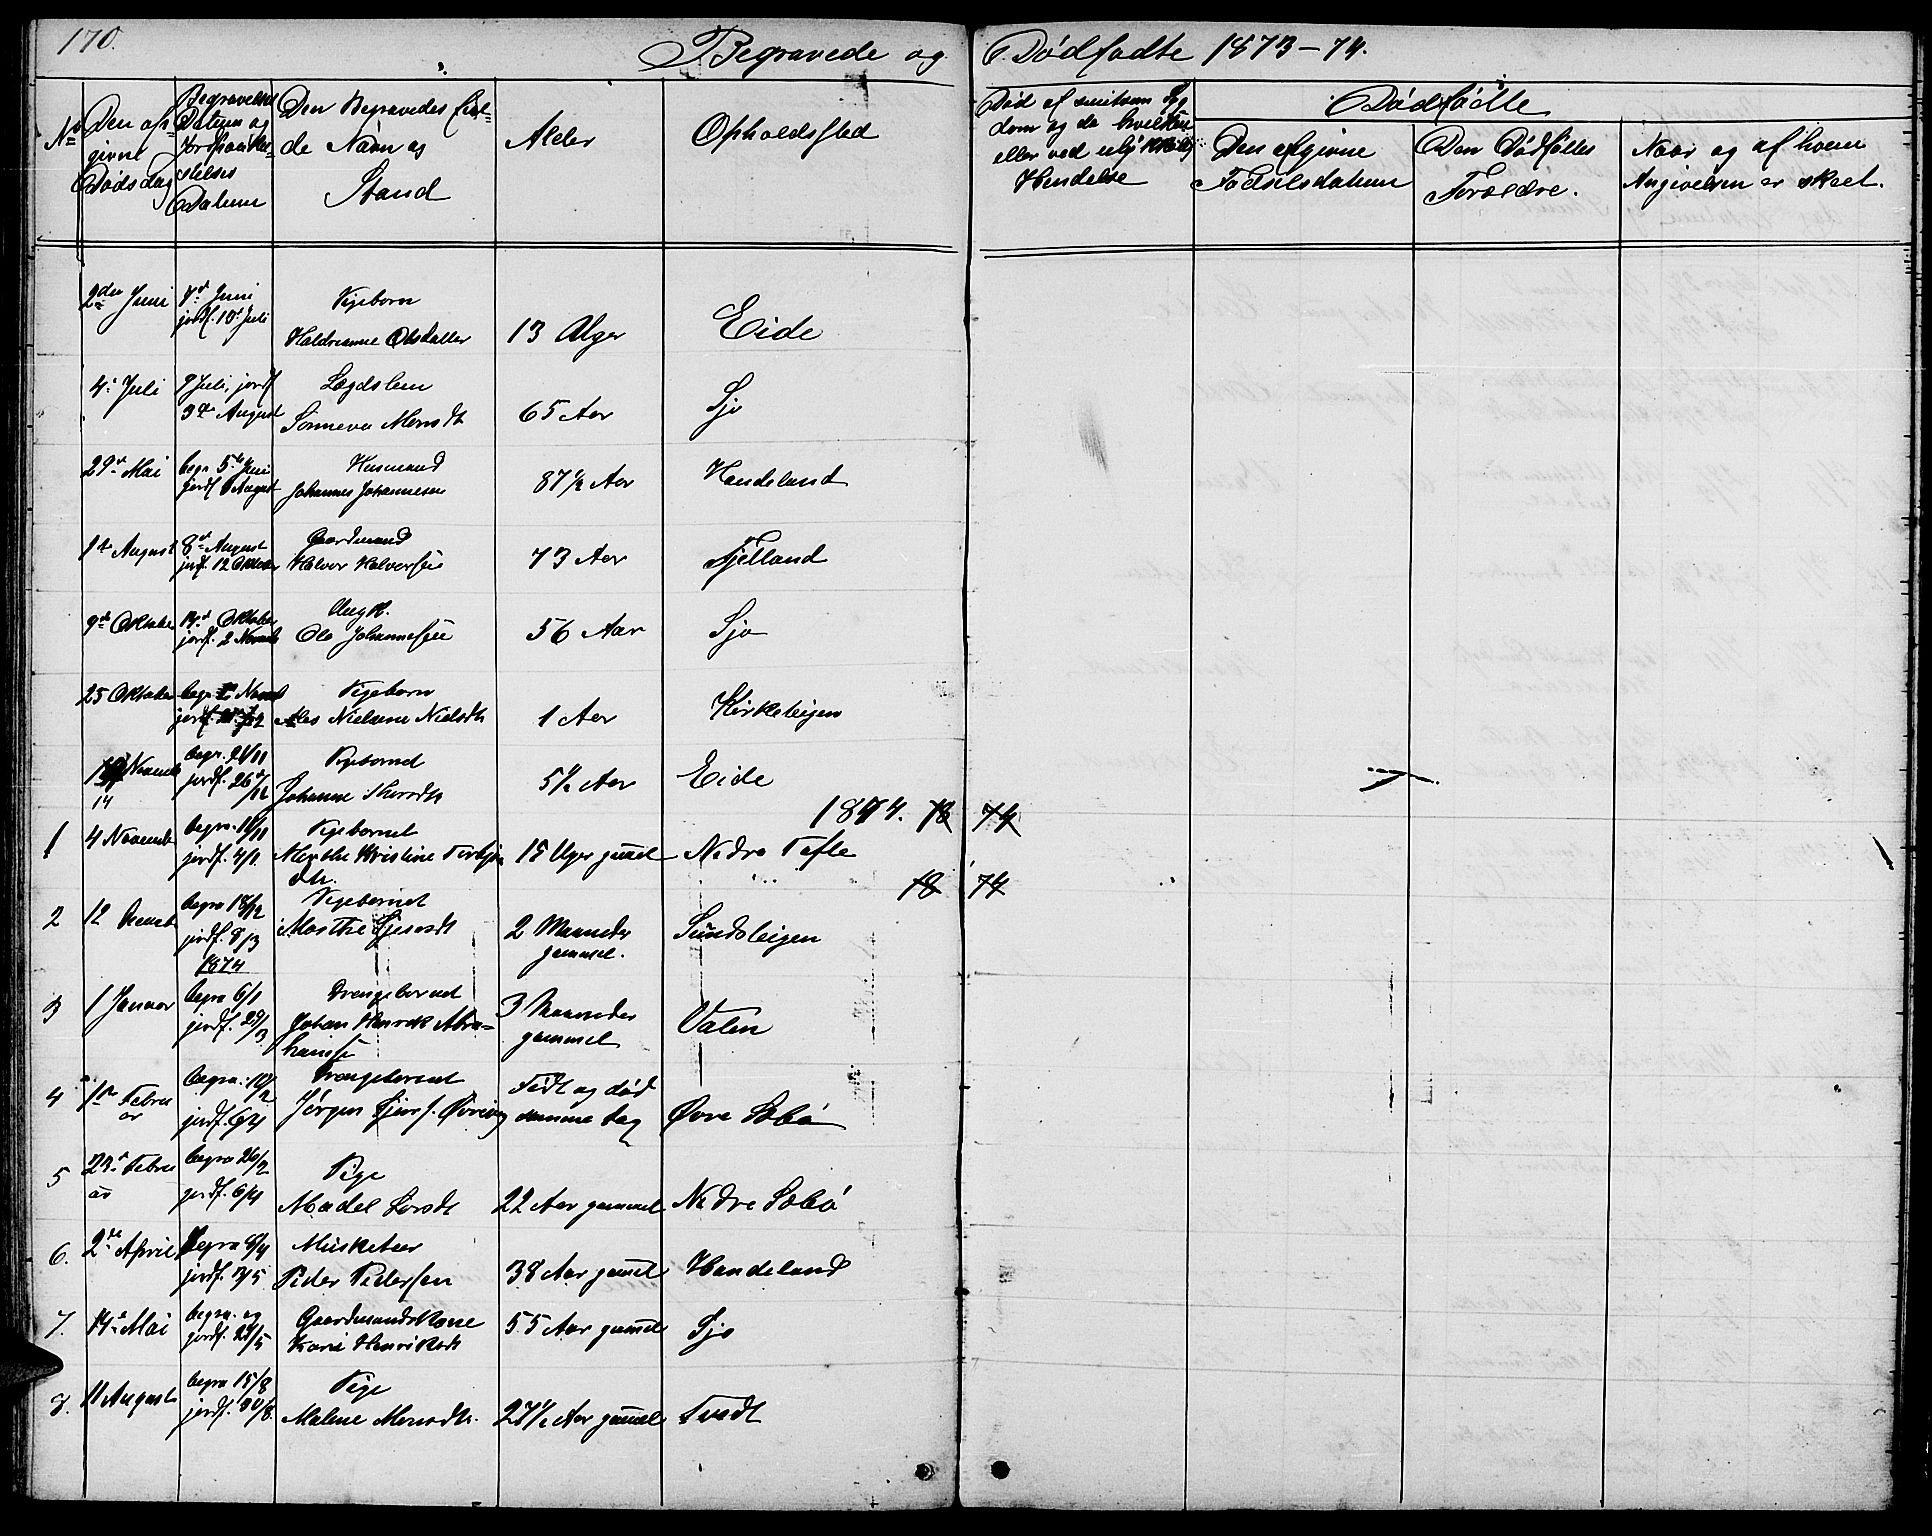 170.
Begravede og Dødfødte 1873-74.
No
Den op=
givne
Dødsdag
Begravelses
Datum og
Jordpaakas=
telses
Datum
Den Begravedes ful=
de Navn og
Stand
Alder
Opholdsted
Død af smitsom Syg
dom og da hvilken
eller ved ulykkelig
Hendelse
Dødfødte
Den opgivne
Fødselsdatum
Den Dødfødtes
Forældre.
Naar og af hvem
Angivelsen er skeet.
2den Juni
7de Juni
jordf. 10de Juli
Pigeborn
13 Uger
Eide
4de Juli
9 Juli, jordf
3de August
Lægdslem
Sønneva Monsdtr
65 Aar
Sjo
29de Mai
begr 5te Juni
jordf August
Husmand
Johannes Johannesen
87 1/2 Aar
Handeland
1te August
8de August
jordf. 12 Oktober
Gaardmand
Halvor Halvorsen
73 Aar
Fjelland
9de Oktober
14de Oktober
jordf. 2 Novemb
Ungk.
Ole Johannesen
56 Aar
Sjo
25 Oktober
begr 2 Novemb
jordf.
Pigeborn
Nielsine Nielsdtr
1 Aar
Kirkeleigen
Novemb
14
begr. 21/11
jordf. 26/12
Pigebarnet
Johanne
5 1/2 Aar
Eide
1874. 18 74
1
4 Novemb
begr. 11/11
jordf. 4/1
Pigebarnet
Marthe Kristine Torbjørn
dtr.
15 Uger gammel
Nedre Tefle
18 74
2
12 Decemb
begra 18/12
jordf. 8/3
1874
Pigebarnet
Marthe
2 Maaneder
gammel.
Sundsleigen
3
1 Januar
begra 6/1
jordf. 29/3
Drengebarnet
Johan Henrik Abra=
hamss
3 Maaneder
gammel
Valen
4
1te Febru
ar
begra: 10/2
jordf. 6/4
Drengebarnet
Jørgen
Født og død
samme dag
Øvre Søbø
5
22de Febru
ar
begra 26/2
jordf. 6/4
Pige
Madel Larsdt
22 Aar gammel
Nedre Søbø
6.
2de April
begra 8/4
jordf. 3/5
Musketeer
Peder Pedersen
38 Aar gammel
Handeland
7.
14de Mai
begra. og
jordf. 21/5
Gaardmandskone
Kari Henriksdt
55 Aar gammel
Sjo
8.
11 August
begra 15/8
jordf. 30/8.
Pige
Malene Monsdtr.
27 1/2 Aar gammel
Tvedt